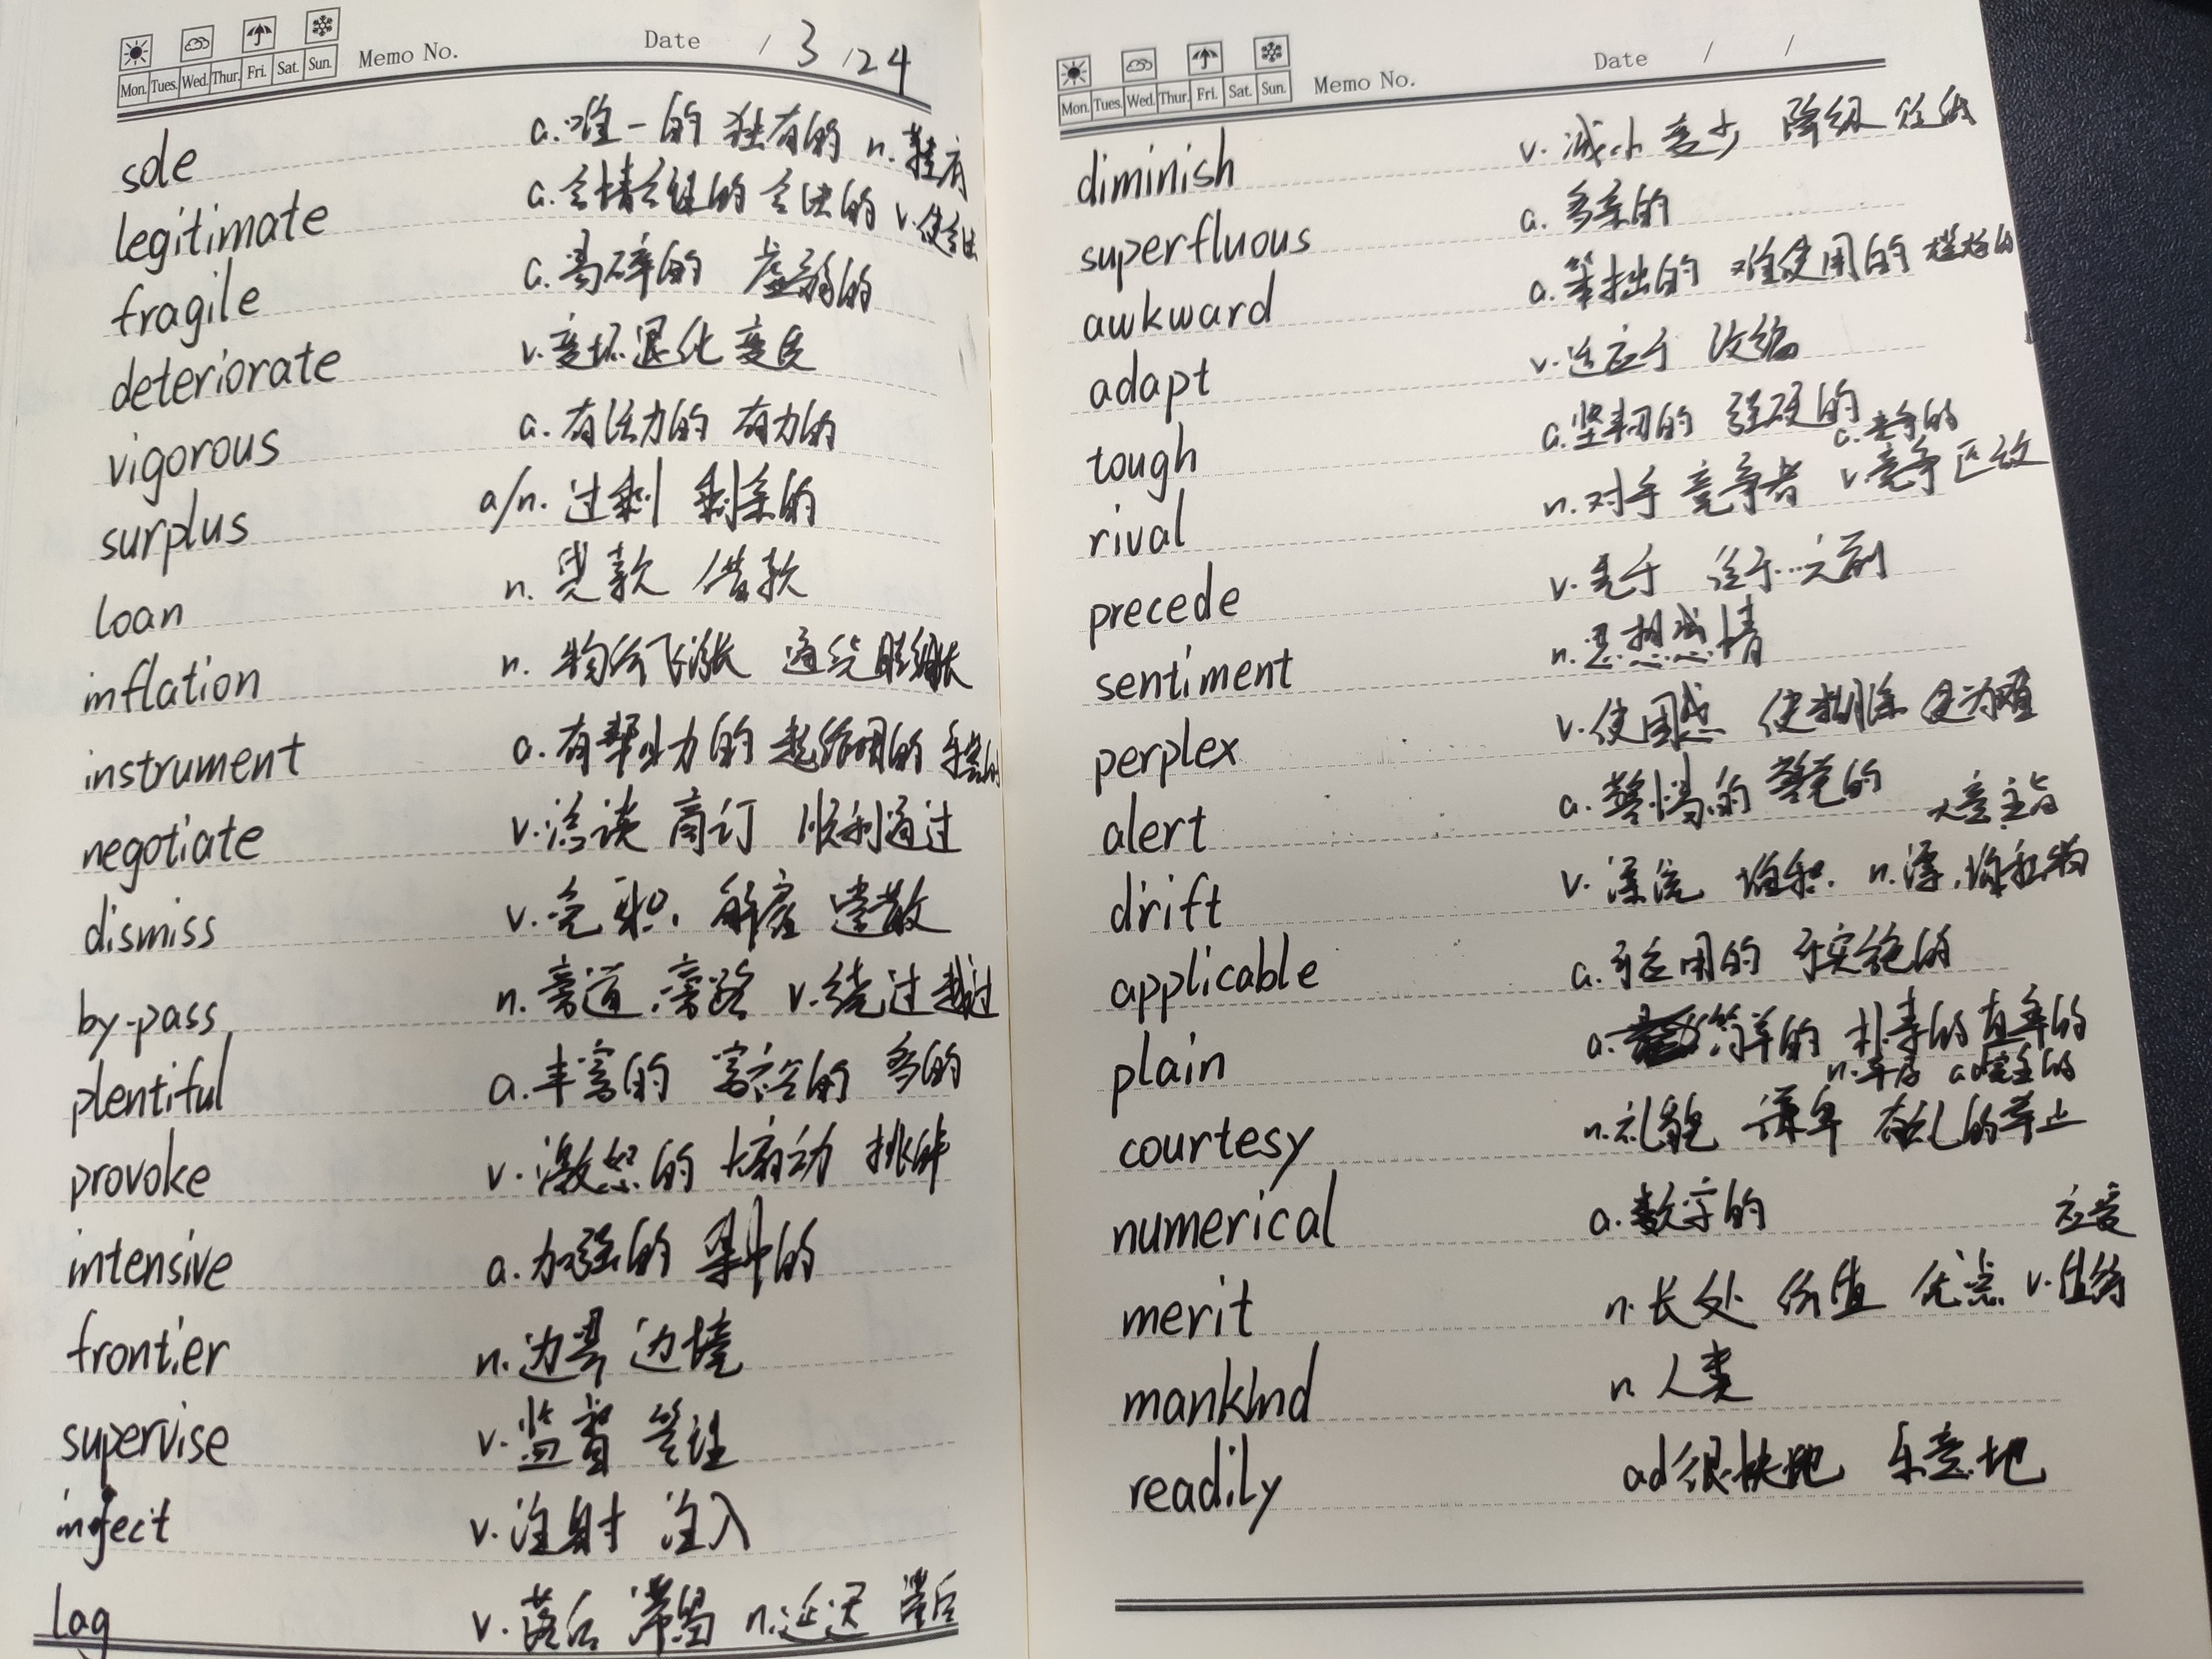 Mon. Tues. Wed. Thur. Fri. Sat. Sun. Memo No. Date / 3 /24
sole a.唯一的 独有的 n.鞋底
legitimate a.合情合理的 合法的 v.使合法
fragile a.易碎的 虚弱的
deteriorate v.变坏 退化 变质
vigorous a.有活力的 有力的
surplus a/n.过剩 剩余的
loan n.贷款 借款
inflation n.物价飞涨 通货膨胀
instrument a.有帮助力的 起作用的
negotiate v.洽谈 商订 顺利通过
dismiss v.免职. 解雇 遣散
by-pass n.旁道.旁路 v.绕过 越过
plentiful a.丰富的 富裕的 多的
provoke v.激怒的 煽动 挑衅
intensive a.加强的 集中的
frontier n.边界 边境
supervise v.监督 管理
inject v.注射 注入
lag v.落后 滞留 n.延迟 滞后
Mon. Tues. Wed. Thur. Fri. Sat. Sun. Memo No. Date / /
diminish v.减小 变少 降级
superfluous a.多余的
awkward a.笨拙的 难使用的
adapt v.适应于 改编
tough a.坚韧的 强硬的
a.竞争的
rival n.对手 竞争者 v.竞争 匹敌
precede v.先于 在于…之前
sentiment n.思想感情
perplex v.使困惑 使 使为难
alert a.警惕的 警觉的
大意主旨
drift v.漂流 堆积. n.漂.堆积物
applicable a.可应用的 可实施的
plain a. 简单的 朴素的 直率的
n.平原 ad完全的
courtesy n.礼貌 谦卑 有礼的举止
numerical a.数字的
应受
merit n.长处 价值 优点 v.值得
mankind n.人类
readily ad很快地 乐意地